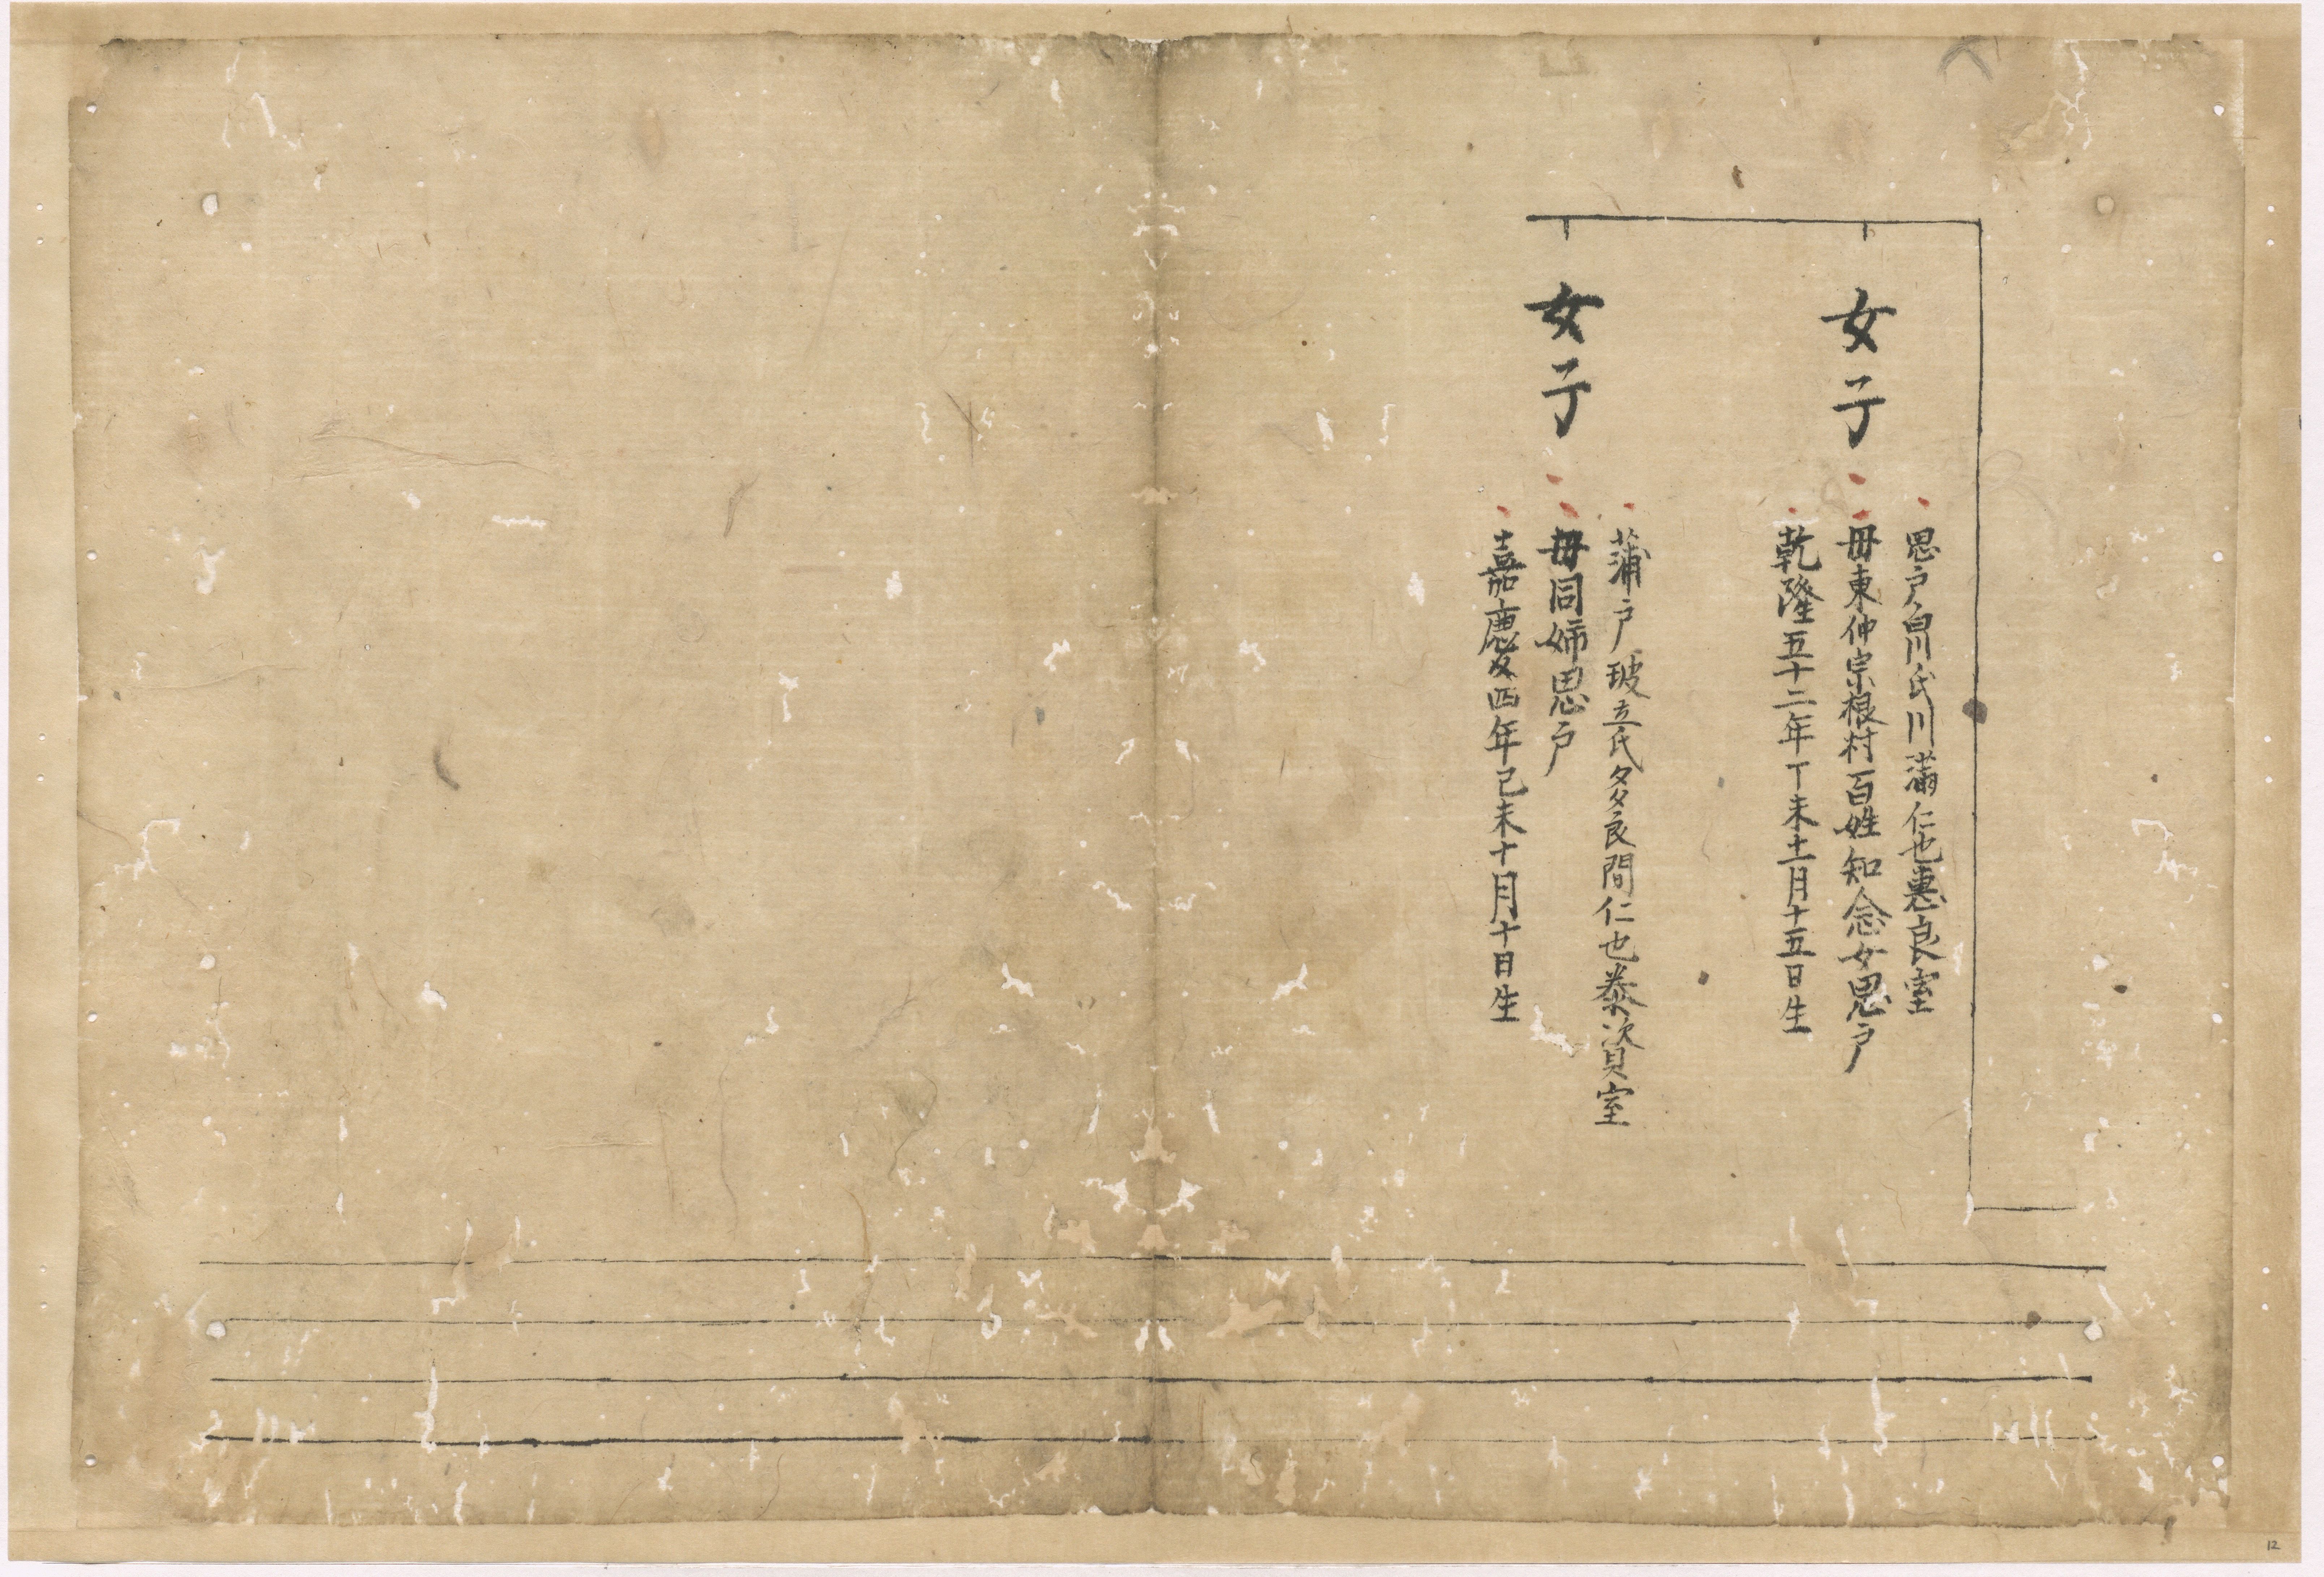 女子
思戸白川氏川滿仁也惠良室
母東仲宗根村百姓知念女思戸
乾隆五十二年丁未十一月十五日生
女子
蒲戸玻立氏多良間仁也泰資室
母同姉思戸
嘉慶四年己未十月十日生
12